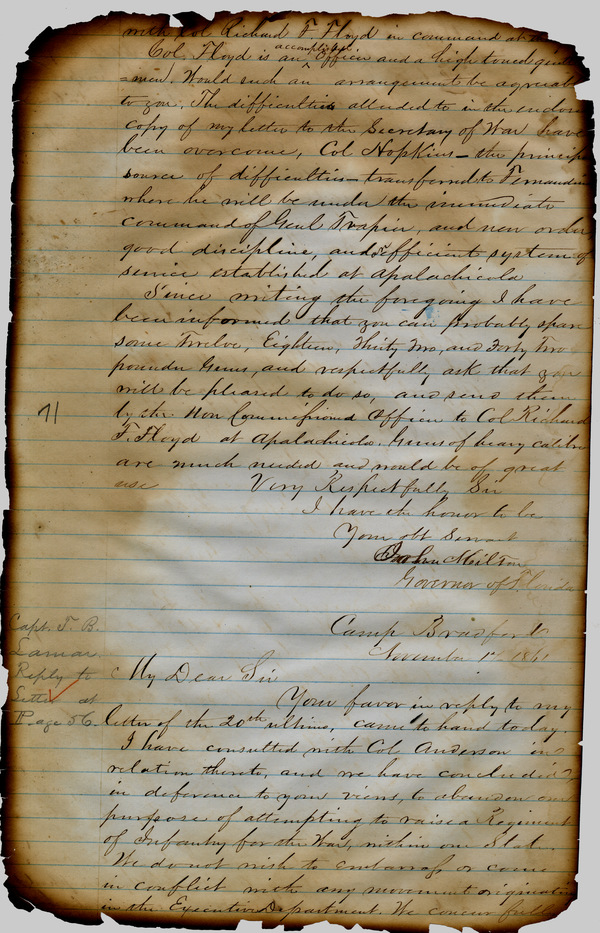 with Col Richard F. Floyd in command at the
Col. Floyd is an accomplished Officer and a high toned gentle
=man. Would such an arrangement be agreeab
to you. The difficulties alluded to in the enclose
copy of my letter to the Secretary of War have
been overcome, Col Hopkins – the principle
source of difficulties – transferred to Fernandina
where he will be under the immediate
command of Genl Trapier, and new order
good discipline, and efficient system of
service established at Apalachicola
Since writing the foregoing I have
been informed that you can probably spare
some Twelve, Eighteen, Thirty Two, and Forty Two
pounder Guns, and respectfully ask that you
will be pleased to do so, and send them
by the Non Commissioned Officer to Col Richard
F. Floyd at Apalachicola. Guns of heavy calibre
are much needed and would be of great
use Very Respectfully Sir
I have the honor to be
Your obt Servant
John Milton
Governor of Florida
71
Camp Bradford
November 1st 1861
Capt. T. B.
Lamar.
Reply to
Letter at
Page 56.
My Dear Sir
Your favor in reply to my
letter of the 20th ultimo, came to hand today.
I have consulted with Col. Anderson in
relation thereto, and we have concluded
in deference to your views, to abandon our
purpose of attempting to raise a Regiment
of Infantry for the War, within our State.
We do not wish to embarrass or come
in conflict with any movement originatin
in the Executive Department. We concur full